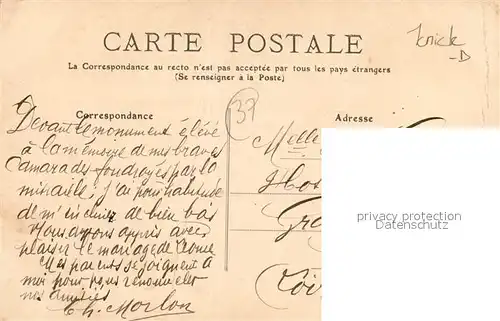 CARTE POSTALE
La Correspondance au recto n'est pas acceptée par tous les pays étrangers
(Se renseigner à la Poste)
Correspondance
Adresse
37
Devant le monument élévé
à la mémoire de mes braves
Camarades foudroyés par la
j'ai pour habitude
de m'incliner de bien bas
Nous avons appris avec
plaisir le mariage de
Mes parents se joignent à
moi pour vous renouveler
nos amitiés
Ch. Morlon
Melle
privacy protection
Datenschutz